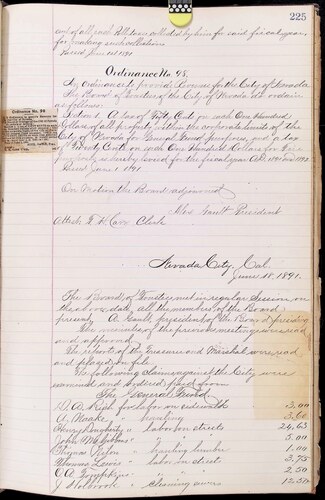 225
cent of all such Collections collected by him for said fiscal year
for making such collections
Passed June 1st 1891
Ordinance No. 98.
An Ordinance to provide Revenue for the City of Nevada.
The Board of Trustees of the City of Nevada do ordain
as follows:
Section 1. A tax of Fifty Cents on each One Hundred
Dollars of all property within the corporate limits of the
City of Nevada for General Fund purposes, and a tax
of Twenty Cents on each One Hundred Dollars for Fire
property is hereby levied for the fiscal year A.D. 1891 and 1892.
Passed June 1. 1891
Ordinance No. 98
On Motion the Board adjourned
Gault President
Attest T. H. Carr Clerk
Nevada City, Cal.
June 18, 1891.
The Board of Trustees met in regular Session on
the above date, all the members of the Board
present. A. Gault President of the Board presiding
The minutes of the previous meeting were read
and approved.
The reports of the Treasurer and Marshal were read
and placed on file.
The following claims against the City were
examined and ordered paid from
The General Fund.
for labor on sidewalk 2.00
A. Maake " lumber 3.60
Henry " labor on streets 24.63
John " " " 5.00
Thomas " hauling lumber 1.00
Thomas Lewis " labor on street 3.75
" " " 2.50
J. Holbrook " cleaning 12.50